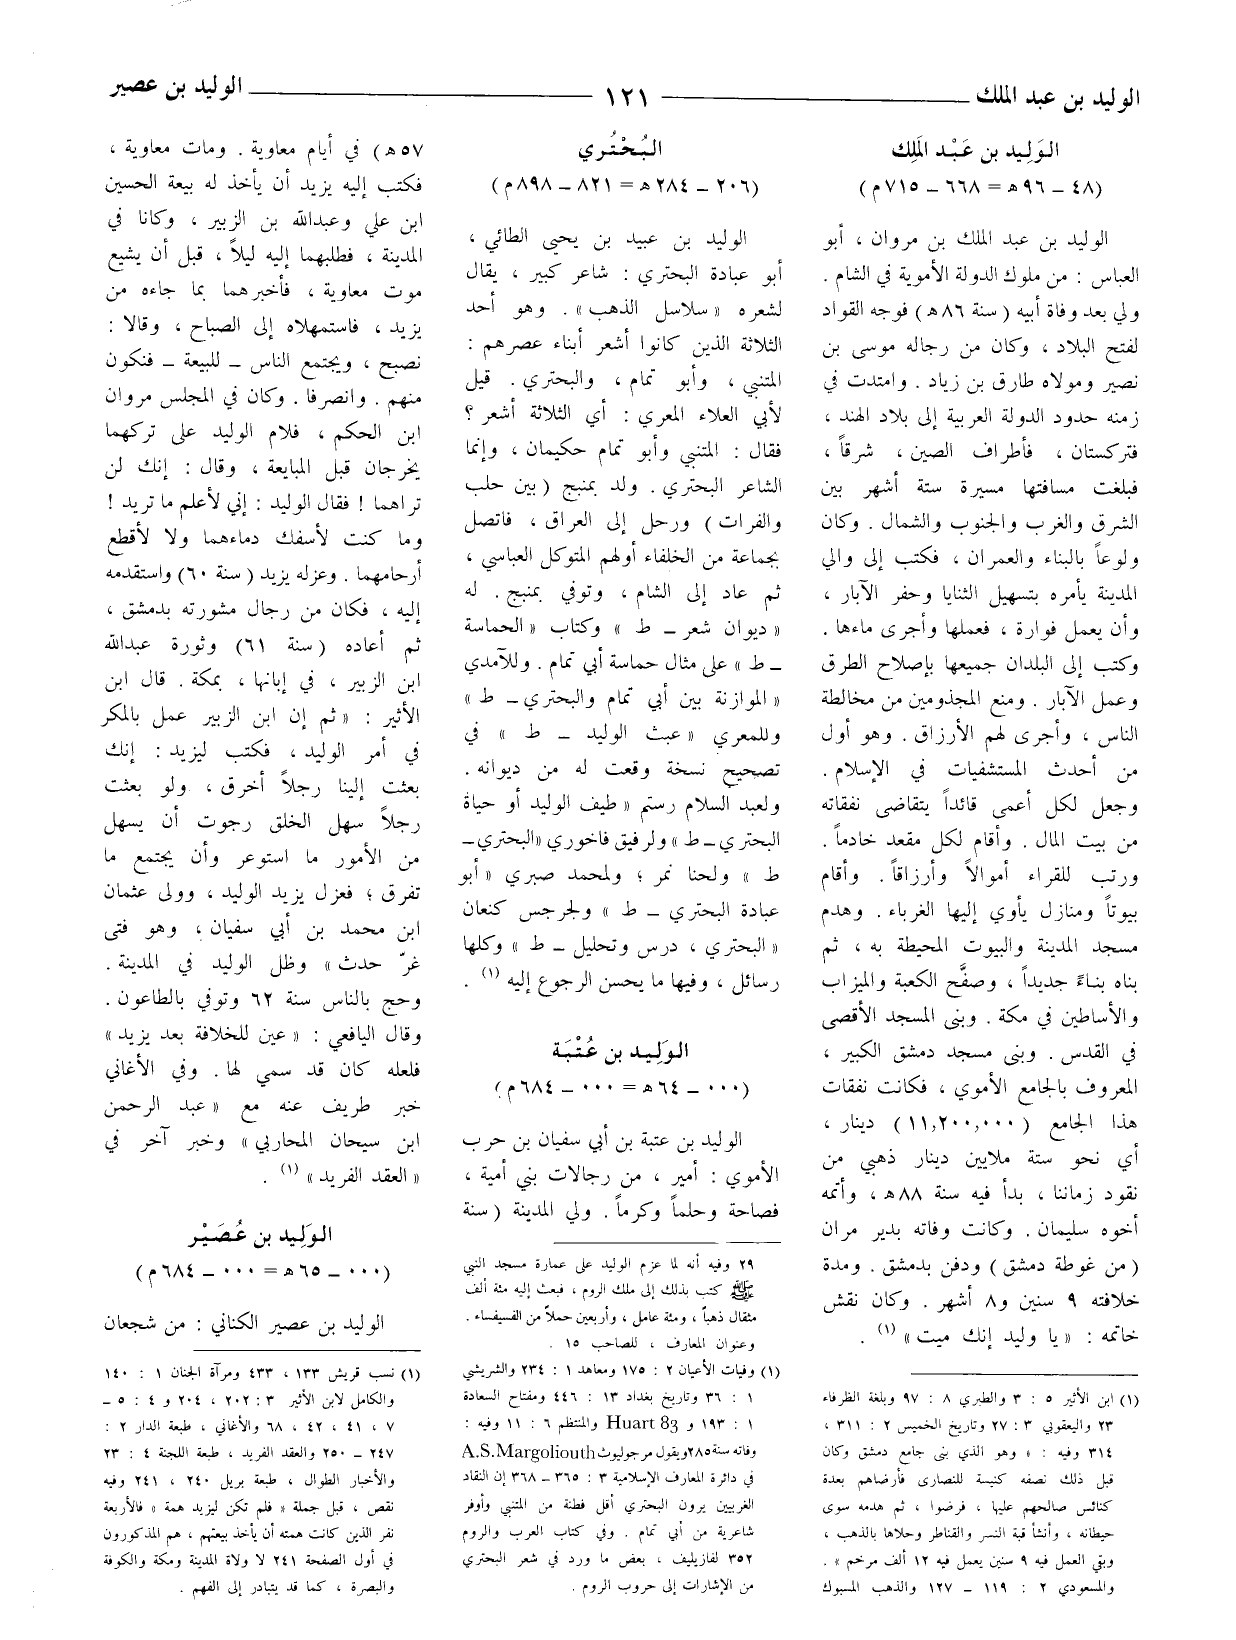 الوليد بن عبد الملك
١٢١
الوليد بن عصير
الوَلِيد بن عَبْد المَلِك
(٤٨ ــ ٩٦ هـ = ٦٦٨ ــ ٧١٥ م)
الوليد بن عبد الملك بن مروان ، أبو
العباس : من ملوك الدولة الأموية في الشام .
ولي بعد وفاة أبيه ( سنة ٨٦ هـ ) فوجه القواد
لفتح البلاد ، وكان من رجاله موسى بن
نصير ومولاه طارق بن زياد . وامتدت في
زمنه حدود الدولة العربية إلى بلاد الهند ،
فتركستان ، فأطراف الصين ، شرقاً ،
فبلغت مسافتها مسيرة ستة أشهر بين
الشرق والغرب والجنوب والشمال . وكان
ولوعاً بالبناء والعمران ، فكتب إلى والي
المدينة يأمره بتسهيل الثنايا وحفر الآبار ،
وأن يعمل فوارة ، فعملها وأجرى ماءها .
وكتب إلى البلدان جميعها بإصلاح الطرق
وعمل الآبار . ومنع المجذومين من مخالطة
الناس ، وأجرى لهم الأرزاق . وهو أول
من أحدث المستشفيات في الإسلام .
وجعل لكل أعمى قائداً يتقاضى نفقاته
من بيت المال . وأقام لكل مقعد خادماً .
ورتب للقراء أموالاً وأرزاقاً . وأقام
بيوتاً ومنازل يأوي إليها الغرباء . وهدم
مسجد المدينة والبيوت المحيطة به ، ثم
بناه بناءً جديداً ، وصفَّح الكعبة والميزاب
والأساطين في مكة . وبنى المسجد الأقصى
في القدس . وبنى مسجد دمشق الكبير ،
المعروف بالجامع الأموي ، فكانت نفقات
هذا الجامع ( ١١,٢٠٠,٠٠٠ ) دينار ،
أي نحو ستة ملايين دينار ذهبي من
نقود زماننا ، بدأ فيه سنة ٨٨ هـ ، وأتمه
أخوه سليمان . وكانت وفاته بدير مران
( من غوطة دمشق ) ودفن بدمشق . ومدة
خلافته ٩ سنين و ٨ أشهر . وكان نقش
خاتمه : « يا وليد إنك ميت » (١) .
(١) ابن الأثير ٥ : ٣ والطبري ٨ : ٩٧ وبلغة الظرفاء
٢٣ واليعقوبي ٣ : ٢٧ وتاريخ الخميس ٢ : ٣١١ ،
٣١٤ وفيه : « وهو الذي بنى جامع دمشق وكان
قبل ذلك نصفه كنيسة للنصارى فأرضاهم بعدة
كنائس صالحهم عليها ، فرضوا ، ثم هدمه سوى
حيطانه ، وأنشأ قبة النسر والقناطر وحلاها بالذهب ،
وبقي العمل فيه ٩ سنين يعمل فيه ١٢ ألف مرخم » .
والمسعودي ٢ : ١١٩ ــ ١٢٧ والذهب المسبوك
البُحْتُري
(٢٠٦ ــ ٢٨٤ هـ = ٨٢١ ــ ٨٩٨ م)
الوليد بن عبيد بن يحيى الطائي ،
أبو عبادة البحتري : شاعر كبير ، يقال
لشعره « سلاسل الذهب » . وهو أحد
الثلاثة الذين كانوا أشعر أبناء عصرهم :
المتنبي ، وأبو تمام ، والبحتري . قيل
لأبي العلاء المعري : أي الثلاثة أشعر ؟
فقال : المتنبي وأبو تمام حكيمان ، وإنما
الشاعر البحتري . ولد بمنبج ( بين حلب
والفرات ) ورحل إلى العراق ، فاتصل
بجماعة من الخلفاء أولهم المتوكل العباسي ،
ثم عاد إلى الشام ، وتوفي بمنبج . له
« ديوان شعر ــ ط » وكتاب « الحماسة
ــ ط » على مثال حماسة أبي تمام . وللآمدي
« الموازنة بين أبي تمام والبحتري ــ ط »
وللمعري « عبث الوليد ــ ط » في
تصحيح نسخة وقعت له من ديوانه .
ولعبد السلام رستم « طيف الوليد أو حياة
البحتري ــ ط » ولرفيق فاخوري « البحتري ــ
ط » ولحنا نمر ؛ ولمحمد صبري « أبو
عبادة البحتري ــ ط » ولجرجس كنعان
« البحتري ، درس وتحليل ــ ط » وكلها
رسائل ، وفيها ما يحسن الرجوع إليه (١) .
الوَلِيد بن عُتْبَة
(٠٠٠ ــ ٦٤ هـ = ٠٠٠ ــ ٦٨٤ م)
الوليد بن عتبة بن أبي سفيان بن حرب
الأموي : أمير ، من رجالات بني أمية ،
فصاحة وحلماً وكرماً . ولي المدينة ( سنة
٢٩ وفيه أنه لما عزم الوليد على عمارة مسجد النبي
ﷺ كتب بذلك إلى ملك الروم ، فبعث إليه مئة ألف
مثقال ذهباً ، ومئة عامل ، وأربعين حملاً من الفسيفساء .
وعنوان المعارف ، للصاحب ١٥
(١) وفيات الأعيان ٢ : ١٧٥ ومعاهد ١ : ٢٣٤ والشريشي
١ : ٣٦ وتاريخ بغداد ١٣ : ٤٤٦ ومفتاح السعادة
١ : ١٩٣ و Huart 83 والمنتظم ٦ : ١١ وفيه :
وفاته سنة ٢٨٥ ويقول مرجوليوث A.S.Margoliouth
في دائرة المعارف الإسلامية ٣ : ٣٦٥ ــ ٣٦٨ إن النقاد
الغربيين يرون البحتري أقل فطنة من المتنبي وأوفر
شاعرية من أبي تمام . وفي كتاب العرب والروم
٣٥٢ لفازيليف ، بعض ما ورد في شعر البحتري
من الإشارات إلى حروب الروم .
٥٧ هـ ) في أيام معاوية . ومات معاوية ،
فكتب إليه يزيد أن يأخذ له بيعة الحسين
ابن علي وعبدالله بن الزبير ، وكانا في
المدينة ، فطلبهما إليه ليلاً ، قبل أن يشيع
موت معاوية ، فأخبرهما بما جاءه من
يزيد ، فاستمهلاه إلى الصباح ، وقالا :
نصبح ، ويجتمع الناس ــ للبيعة ــ فنكون
منهم . وانصرفا . وكان في المجلس مروان
ابن الحكم ، فلام الوليد على تركهما
يخرجان قبل المبايعة ، وقال : إنك لن
تراهما ! فقال الوليد : إني لأعلم ما تريد !
وما كنت لأسفك دماءهما ولا لأقطع
أرحامهما . وعزله يزيد ( سنة ٦٠ ) واستقدمه
إليه ، فكان من رجال مشورته بدمشق ،
ثم أعاده ( سنة ٦١ ) وثورة عبدالله
ابن الزبير ، في إبانها ، بمكة . قال ابن
الأثير : « ثم إن ابن الزبير عمل بالمكر
في أمر الوليد ، فكتب ليزيد : إنك
بعثت إلينا رجلاً أخرق ، ولو بعثت
رجلاً سهل الخلق رجوت أن يسهل
من الأمور ما استوعر وأن يجتمع ما
تفرق ؛ فعزل يزيد الوليد ، وولى عثمان
ابن محمد بن أبي سفيان ، وهو فتى
غرّ حدث » وظل الوليد في المدينة .
وحج بالناس سنة ٦٢ وتوفي بالطاعون .
وقال اليافعي : « عين للخلافة بعد يزيد »
فلعله كان قد سمي لها . وفي الأغاني
خبر طريف عنه مع « عبد الرحمن
ابن سيحان المحاربي » وخبر آخر في
« العقد الفريد » (١) .
الوَلِيد بن عُصَيْر
(٠٠٠ ــ ٦٥ هـ = ٠٠٠ ــ ٦٨٤ م)
الوليد بن عصير الكناني : من شجعان
(١) نسب قريش ١٣٣ ، ٤٣٣ ومرآة الجنان ١ : ١٤٠
والكامل لابن الأثير ٣ : ٢٠٢ ، ٢٠٤ و ٤ : ٥ ــ
٧ ، ٤١ ، ٤٢ ، ٦٨ والأغاني ، طبعة الدار ٢ :
٢٤٧ ــ ٢٥٠ والعقد الفريد ، طبعة اللجنة ٤ : ٢٣
والأخبار الطوال ، طبعة بريل ٢٤٠ ، ٢٤١ وفيه
نقص ، قبل جملة « فلم تكن ليزيد همة » فالأربعة
نفر الذين كانت همته أن يأخذ بيعتهم ، هم المذكورون
في أول الصفحة ٢٤١ لا ولاة المدينة ومكة والكوفة
والبصرة ، كما قد يتبادر إلى الفهم .